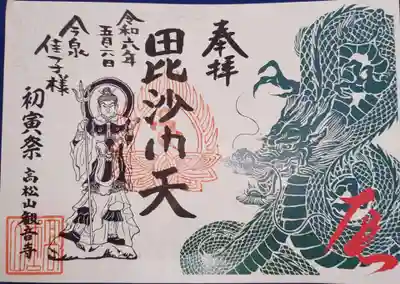 奉拝
毘沙門天
令和六年
五月六日
今泉
佳子様
初寅祭
高松山観音寺